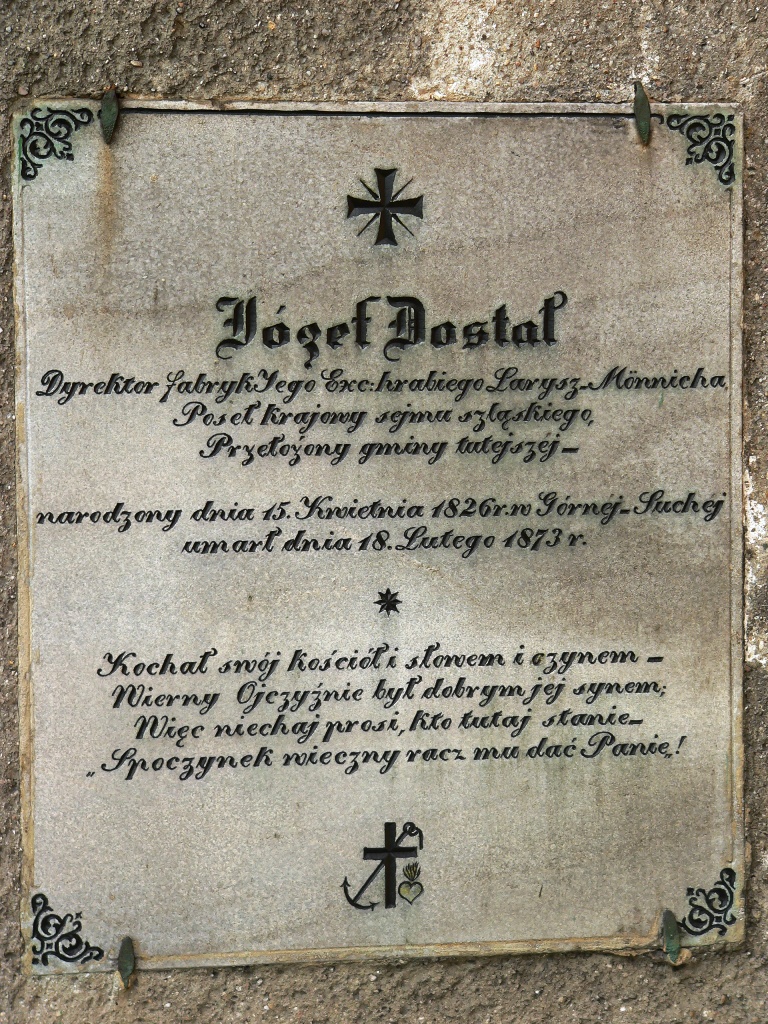 Józef Dostał
Dyrektor fabryk Jego Exc: hrabiego Larysz-Mönnicha,
Poseł krajowy sejmu szląskiego,
Przełożony gminy tutejszéj –
narodzony dnia 15. Kwietnia 1826 r. w Górnéj-Suchej
umarł dnia 18. Lutego 1873 r.
Kochał swój kościół i słowem i czynem –
Wierny Ojczyźnie był dobrym jej synem;
Więc niechaj prosi, kto tutaj stanie –
„Spoczynek wieczny racz mu dać Panie„!